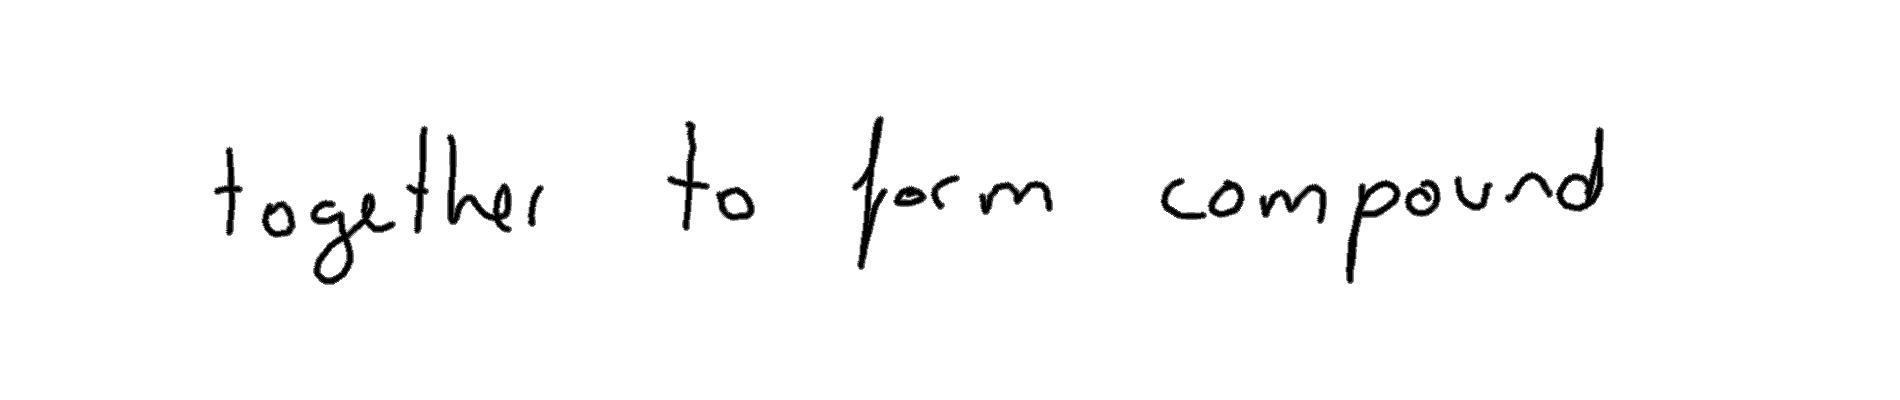 together to form compound